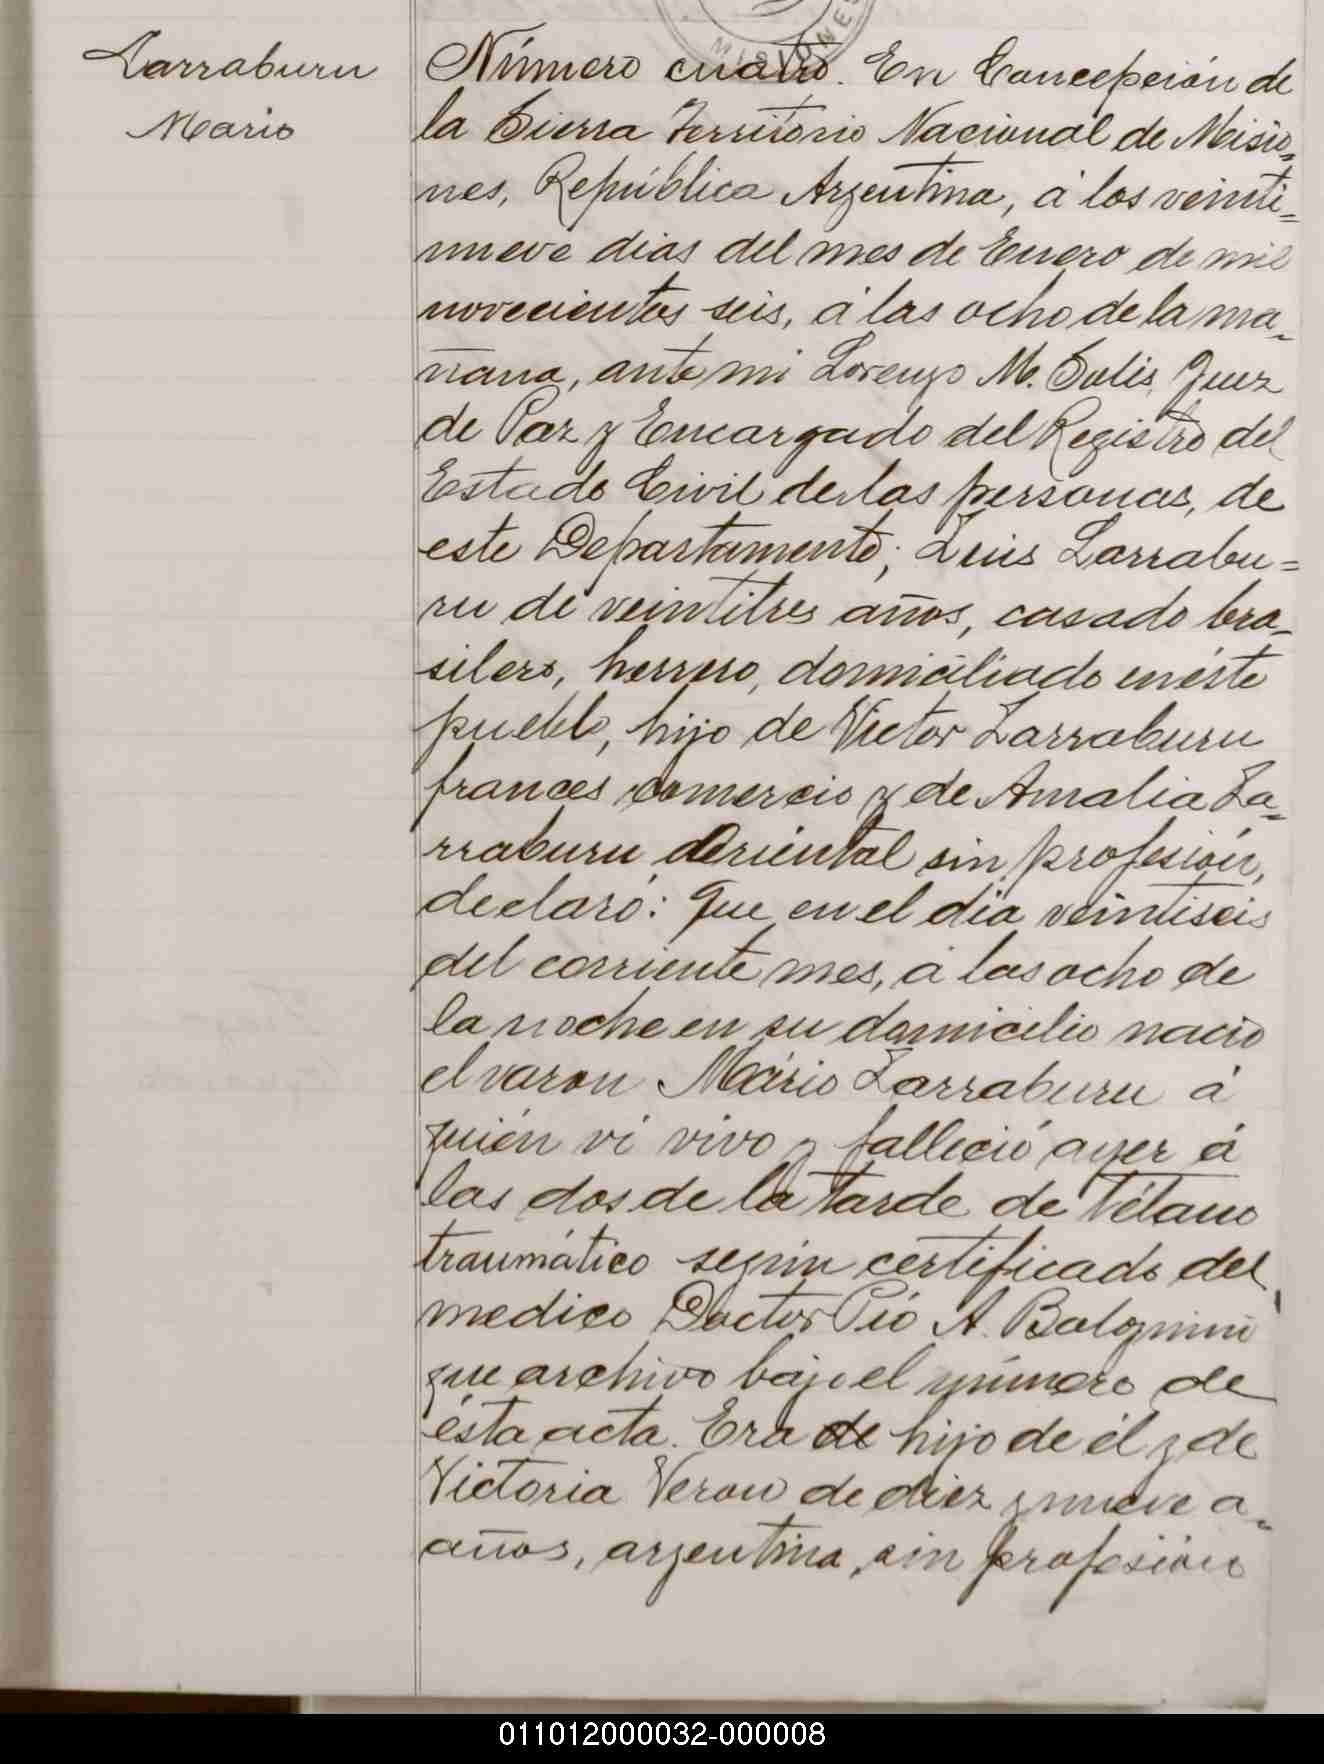 MISIONES
Larraburu
Mario
Número cuatro. En Concepción de
la Sierra Territorio Nacional de Misio=
nes, República Argentina, á los veinti=
nueve dias del mes de Enero de mil
novecientos seis, á las ocho de la ma-
ñana, ante mi Lorenzo M. Solis, Juez
de Paz y Encargado del Registro del
Estado Civil de las personas, de
este Departamento; Luis Larrabu=
ru de veintitres años, casado bra-
silero, herrero, domiciliado en éste
pueblo, hijo de Victor Larraburu
frances comercio y de Amalia La-
rraburu, Oriental sin profesión,
declaró: Que en el dia veintiseis
del corriente mes, á las ocho de
la noche en su domicilio nació
el varon Mário Larraburu á
quién vi vivo y falleció ayer á
las dos de la tarde de tétano
traumático según certificado del
medico Doctor Pió A. Bolognini
que archivo bajo el número de
ésta acta. Era de hijo de él y de
Victoria Veron de diez y nueve a-
años, argentina, sin profesión
011012000032-000008